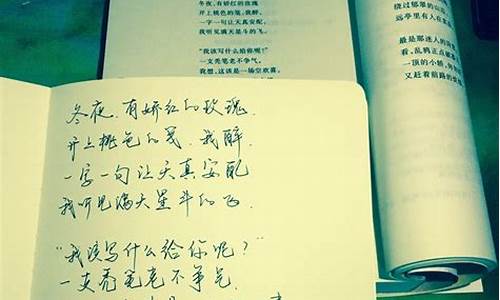 冬夜,有娇红的玫瑰
开上桃色的笺,我醉,
一字一句让天真安配
我听见满天星斗的飞
"我该写什么给你呢?"
一支秃笔老不争气,
冬夜,有娇红的玫瑰
开上桃色的笺,我醉,
一字一句让天真安配,
我听见满天星斗的飞。
"我该写什么给你呢?"
一支秃笔老不争气,
我想,这该是一场空欢喜。
绕过郁翠的山
远亭里有人在
最是那迷人的
看,乱鸦正点
一顶的小轿,
又赶着前路的